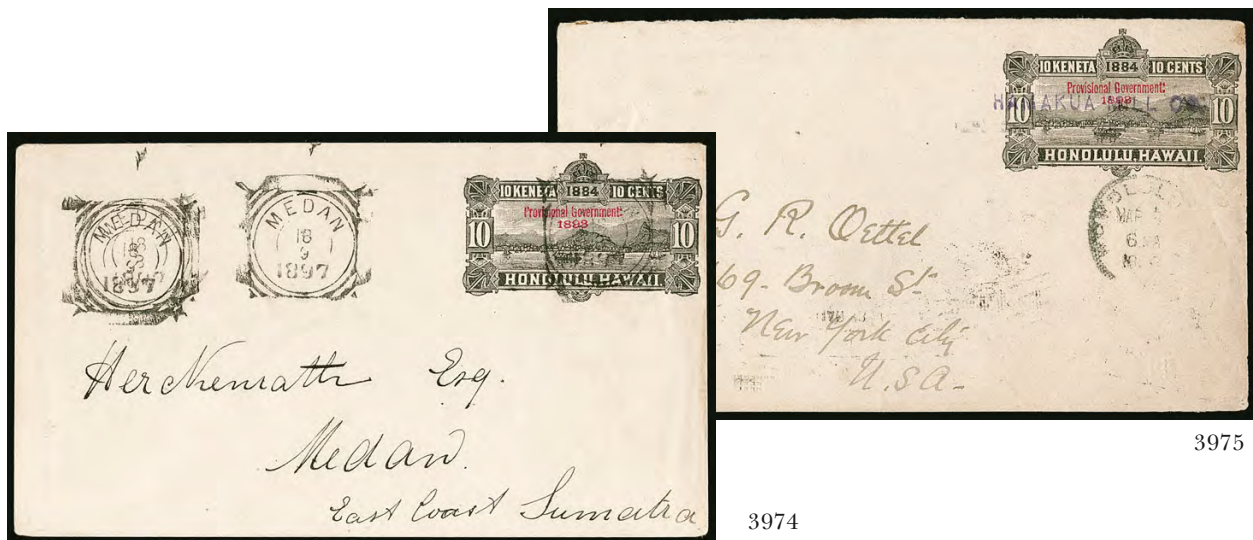 MEDAN
1897
MEDAN
18
9
1897
10 KENETA 1884 10 CENTS
Provisional Government
1893
10 10
HONOLULU, HAWAII.
Herckenrath Esq.
Medan.
East Coast Sumatra
3974
10 KENETA 1884 10 CENTS
Provisional Government
1893
HAMAKUA MILL CO
10 10
HONOLULU, HAWAII.
HONOLULU
MAR
6
G. R. Oettel
69 - Broom St.
New York City
U.S.A-
3975